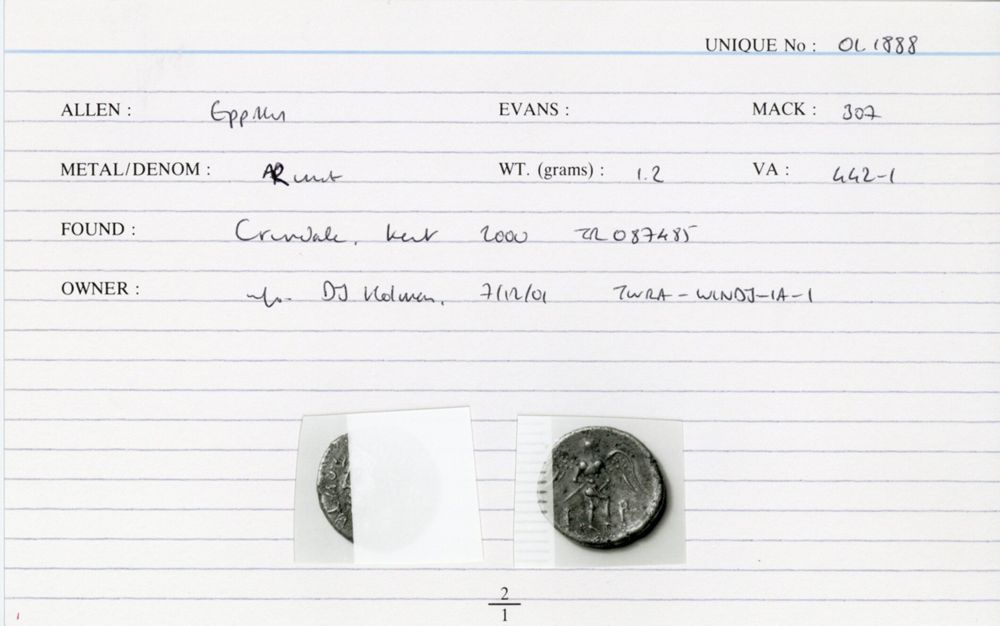 UNIQUE No : OL 1888
ALLEN : Eppillus EVANS : MACK : 307
METAL/DENOM : AR unit WT. (grams) : 1.2 VA : 442-1
FOUND : Crundale, Kent 2000 TR 087485
OWNER : DJ Holman, 7/12/01 TWRA-WINDJ-IA-1
2
1